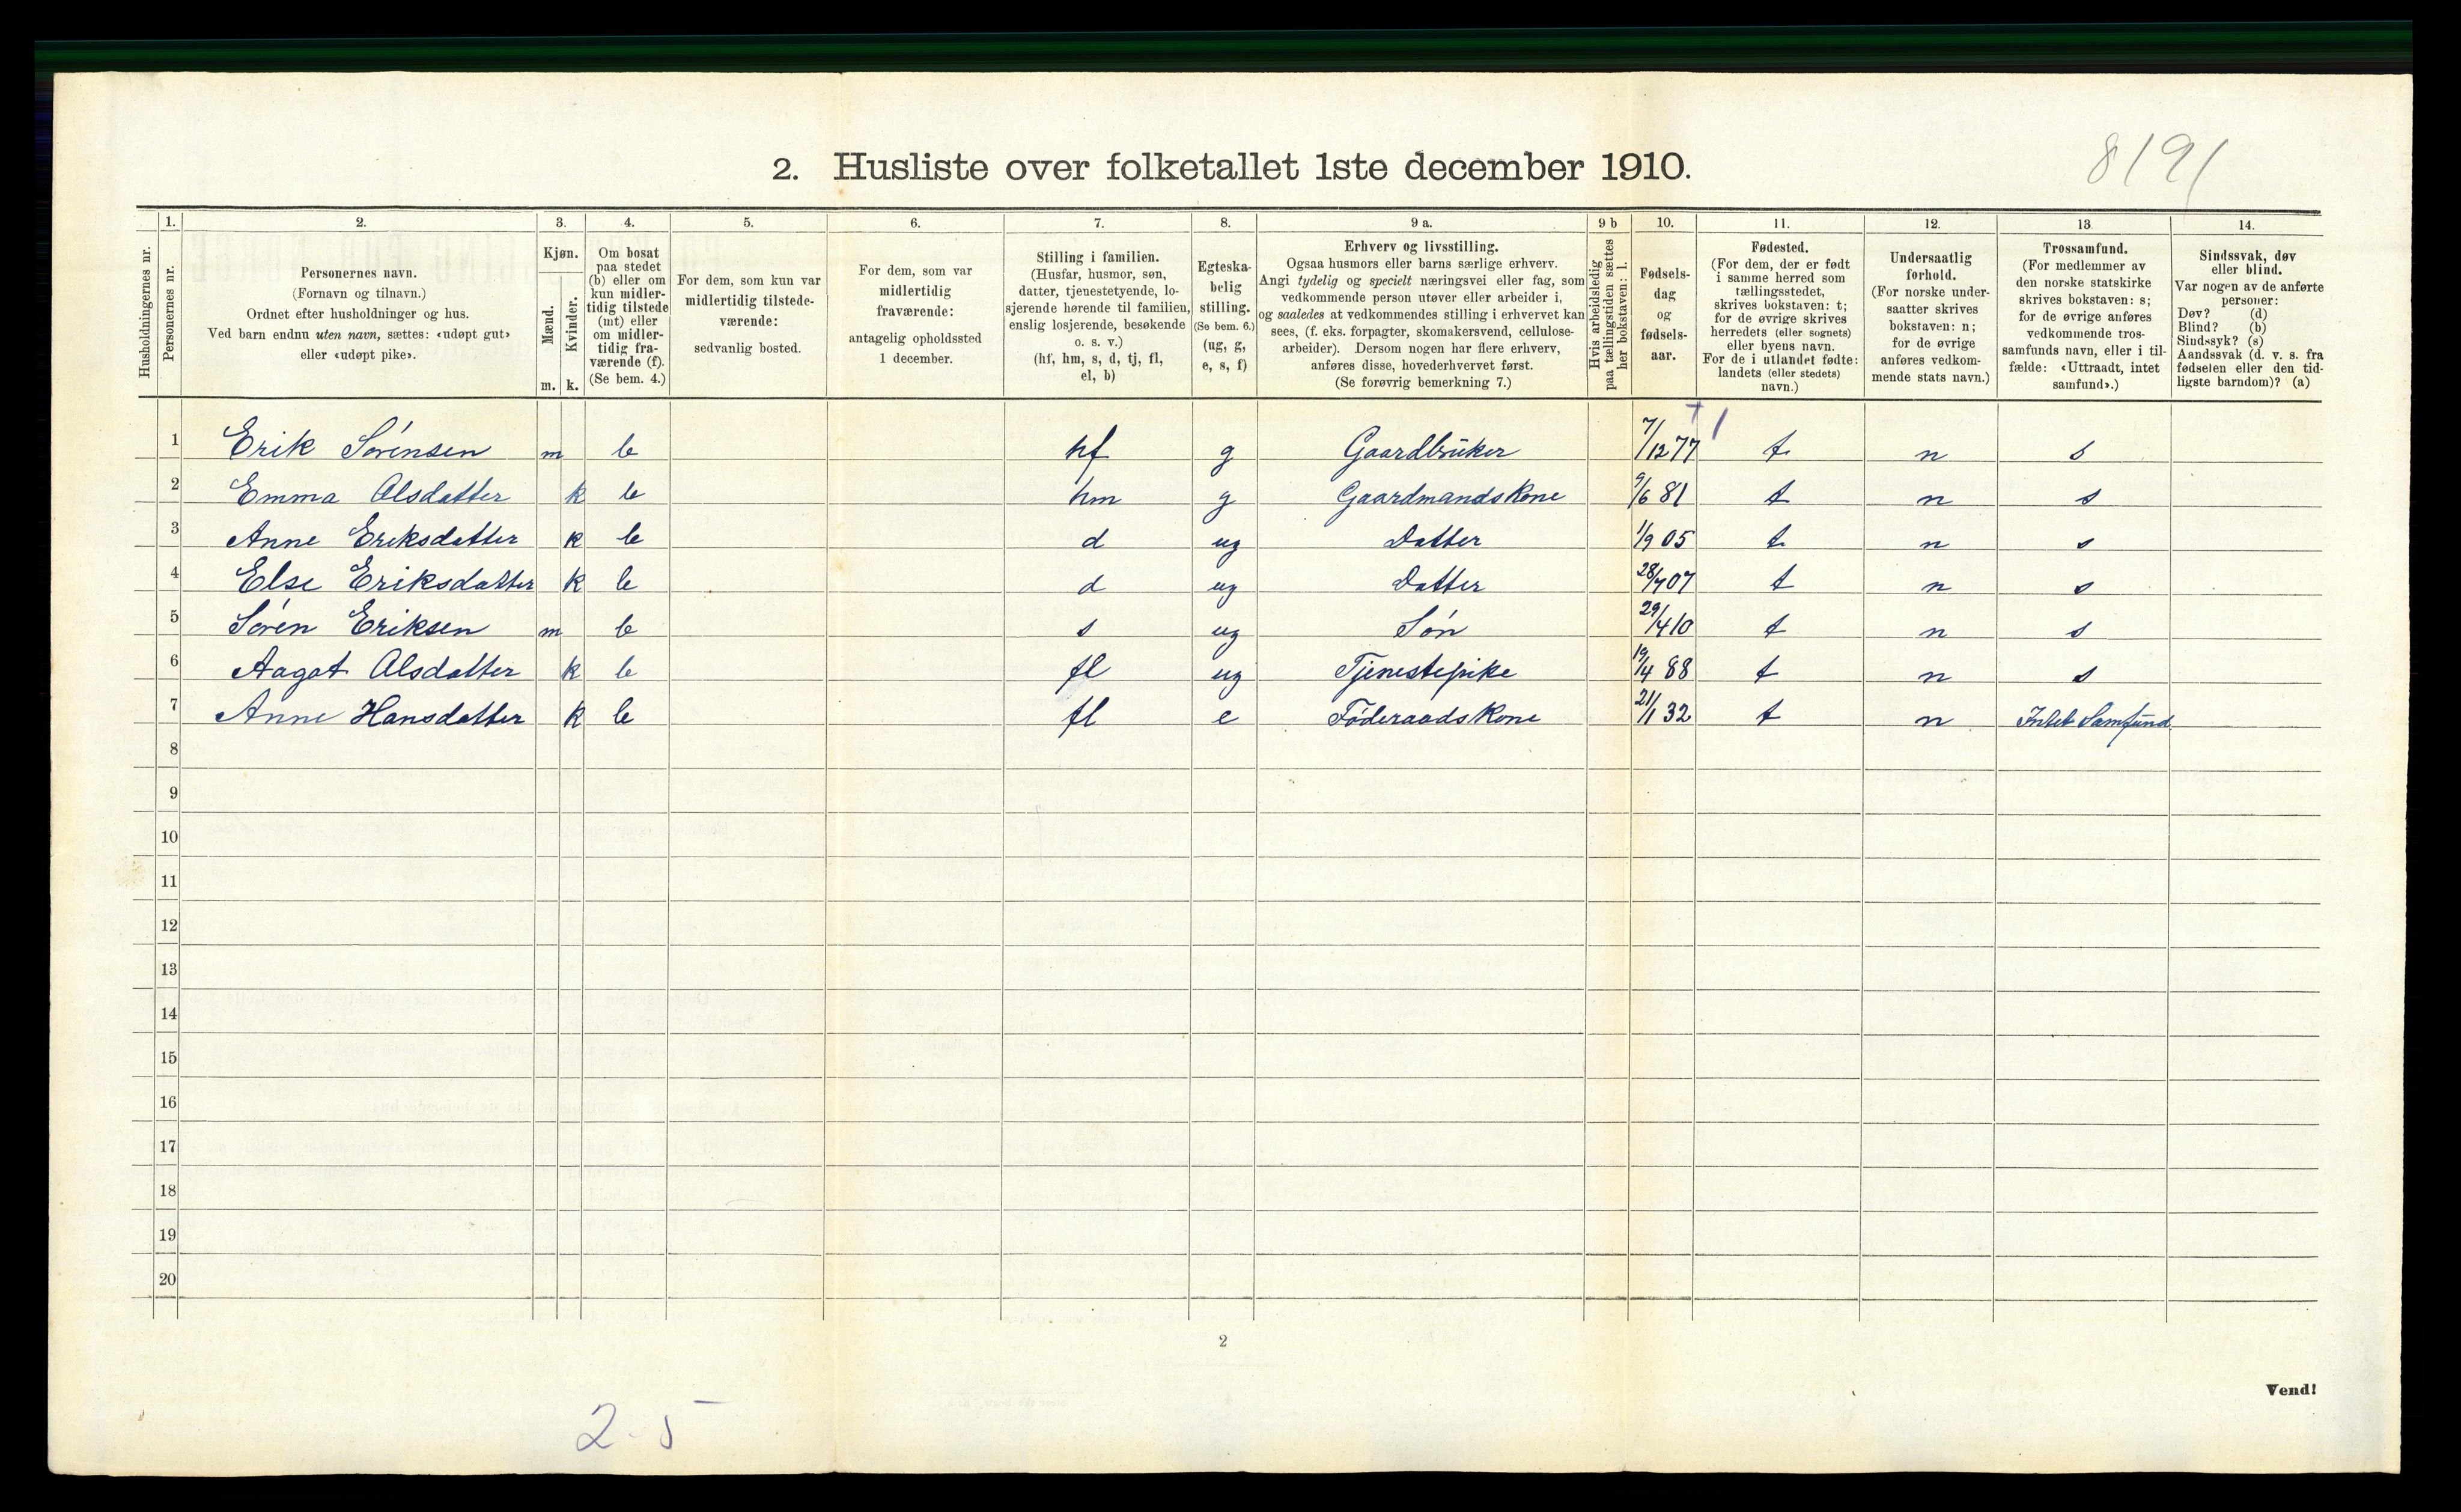 8191
2. Husliste over folketallet 1ste december 1910.
Husholdningernes nr.
1. Personernes nr.
2. Personernes navn.
(Fornavn og tilnavn.)
Ordnet efter husholdninger og hus.
Ved barn endnu uten navn, sættes: «udøpt gut»
eller «udøpt pike».
3. Kjøn.
Mænd. m.
Kvinder. k.
4. Om bosat
paa stedet
(b) eller om
kun midler-
tidig tilstede
(mt) eller
om midler-
tidig fra-
værende (f).
(Se bem. 4.)
5. For dem, som kun var
midlertidig tilstede-
værende:
sedvanlig bosted.
6. For dem, som var
midlertidig
fraværende:
antagelig opholdssted
1 december.
7. Stilling i familien.
(Husfar, husmor, søn,
datter, tjenestetyende, lo-
sjerende hørende til familien,
enslig losjerende, besøkende
o. s. v.)
(hf, hm, s, d, tj, fl,
el, b)
8. Egteska-
belig
stilling.
(Se bem. 6.)
(ug, g,
e, s, f)
9 a. Erhverv og livsstilling.
Ogsaa husmors eller barns særlige erhverv.
Angi tydelig og specielt næringsvei eller fag, som
vedkommende person utøver eller arbeider i,
og saaledes at vedkommendes stilling i erhvervet kan
sees, (f. eks. forpagter, skomakersvend, cellulose-
arbeider). Dersom nogen har flere erhverv,
anføres disse, hovederhvervet først.
(Se forøvrig bemerkning 7.)
9 b Hvis arbeidsledig
paa tællingstiden sættes
her bokstaven: l.
10. Fødsels-
dag
og
fødsels-
aar.
11. Fødested.
(For dem, der er født
i samme herred som
tællingsstedet,
skrives bokstaven: t;
for de øvrige skrives
herredets (eller sognets)
eller byens navn.
For de i utlandet fødte:
landets (eller stedets)
navn.)
12. Undersaatlig
forhold.
(For norske under-
saatter skrives
bokstaven: n;
for de øvrige
anføres vedkom-
mende stats navn.)
13 Trossamfund.
(For medlemmer av
den norske statskirke
skrives bokstaven: s;
for de øvrige anføres
vedkommende tros-
samfunds navn, eller i til-
fælde: «Uttraadt, intet
samfund».)
14. Sindssvak, døv
eller blind.
Var nogen av de anførte
personer:
Døv? (d)
Blind? (b)
Sindssyk? (s)
Aandssvak (d. v. s. fra
fødselen eller den tid-
ligste barndom)? (a)
1 Erik Sørensen m b hf g Gaardbruker 7/12 77 t n s
2 Emma Olsdatter k b hm g Gaardmandskone 9/6 81 t n s
3 Anne Eriksdatter k b d ug Datter 1/9 05 t n s
4 Else Eriksdatter k b d ug Datter 28/7 07 t n s
5 Søren Eriksen m b s ug Søn 29/4 10 t n s
6 Aagot Olsdatter k b fl ug Tjenestepike 19/4 88 t n s
7 Anne Hansdatter k b fl e Føderaadskone 21/1 32 t n Intet Samfund
8
9
10
11
12
13
14
15
16
17
18
19
20
2
Vend!
2-5